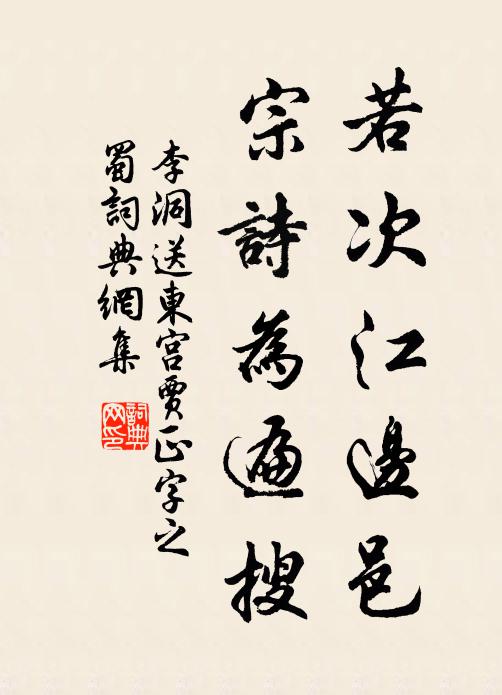 若次江邊邑
宗詩為遍搜
李洞送東宮賈正字之
蜀詞典網集
詞典网印